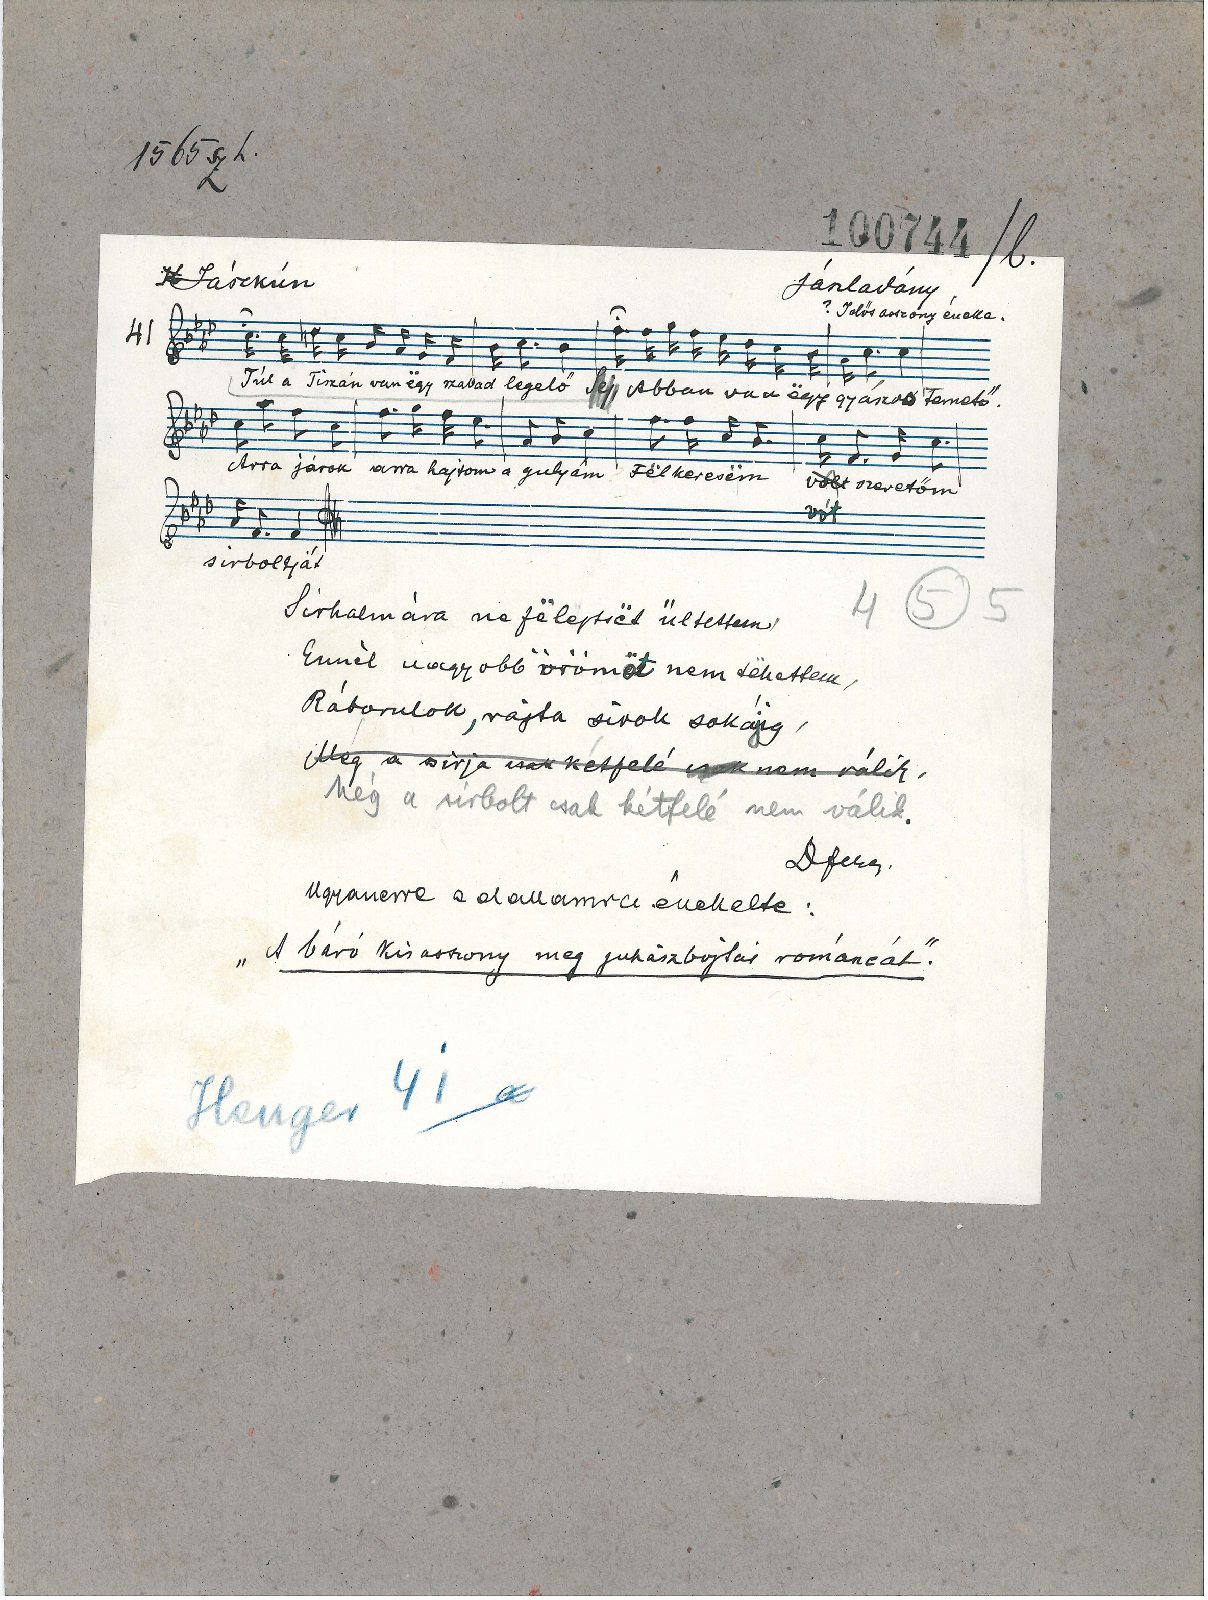 1565 sz h.
100744/b.
Jászkún
Jászladány
? Idős asszony éneke.
41
Túl a Tiszán van ëgy szabad legelő Abban van ëgy gyászos Temető".
Arra járok arra hajtom a gulyám Fëlkeresëm volt szeretőm
vót
sirboltját
4 5 5
Sirhalmára nefëlejtsët ültettem,
Ennél nagyobb örömöt nem tëhettem,
Ráborulok, rajta sirok sokáig,
Még a sirja csak kétfelé csak nem válik,
Még a sírbolt csak kétfelé nem válik.
Ugyanerre a dallamra énekelte:
„A báró kisasszony meg juhászbojtár románcát".
Henger 41 a